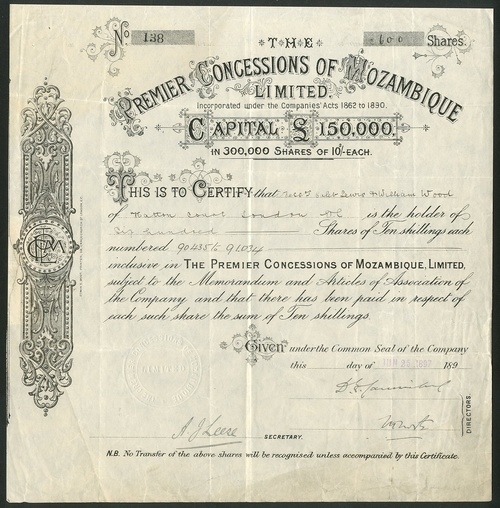 No 138
600 Shares.
THE
PREMIER CONCESSIONS OF MOZAMBIQUE
LIMITED.
Incorporated under the Companies' Acts 1862 to 1890.
CAPITAL £ 150,000.
IN 300,000 SHARES OF 10/- EACH.
THIS IS TO CERTIFY that Lewis & William Wood
of Hatton London is the holder of
Six hundred Shares of Ten shillings each
numbered 90435 to 91034
inclusive in THE PREMIER CONCESSIONS OF MOZAMBIQUE, LIMITED,
subject to the Memorandum and Articles of Association of
the Company and that there has been paid in respect of
each such share the sum of Ten shillings.
Given under the Common Seal of the Company
this day of 189
DIRECTORS.
A. J. Leese SECRETARY.
N.B. No Transfer of the above shares will be recognised unless accompanied by this Certificate.